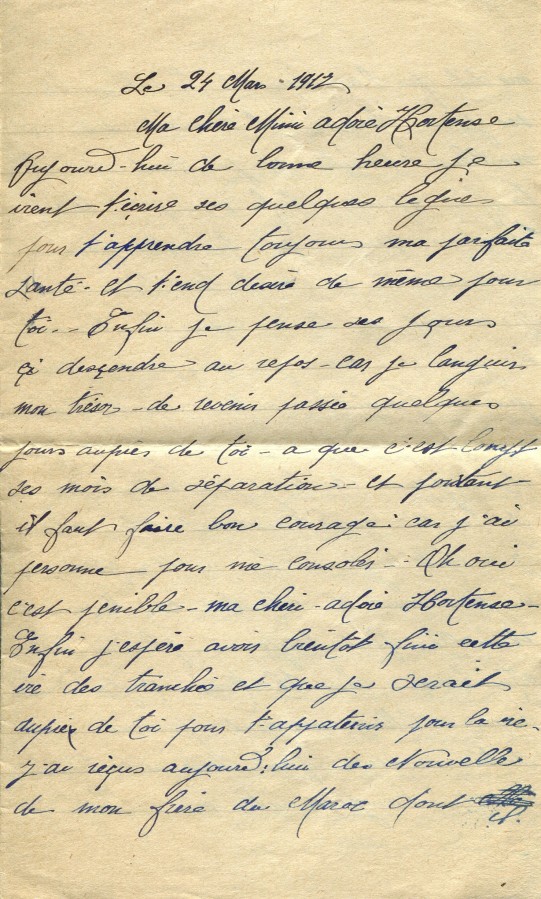 Le 24 Mars 1917
Ma chère Mimi adoré Hortense
Aujourd-hui de bonne heure je
vient t'écrire ses quelques lignes
pour t'apprendre toujours ma parfaite
santé - et t'end désire de même pour
toi -- Enfin je pense ses jours
çi desçendre au repos - car je languis
mon trésor - de revenir passée quelques
jours aupres de toi - a que c'est long
ses mois de séparation - et pourtant -
il faut faire bon courage car j'ai
personne pour me consoler -- Oh oui
c'est penible - ma chéri - adoré Hortense -
Enfin j'espère avoir bientot fini cette
vie des tranchés et que je serait
aupres de toi pour t'appatenir pour la vie -
J'ai reçus aujourd'hui des Nouvelle
de mon frère du Maroc dont
il